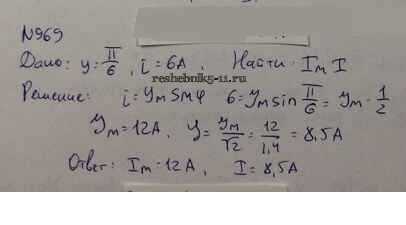 №969
Дано: φ = π/6, i = 6А, Найти: Iм I
reshebnik5-11.ru
Решение: i = Yм sin φ 6 = Yм sin π/6 = Yм · 1/2
Yм = 12А, Y = Yм/√2 = 12/1,4 = 8,5А
Ответ: Iм = 12А, I = 8,5А